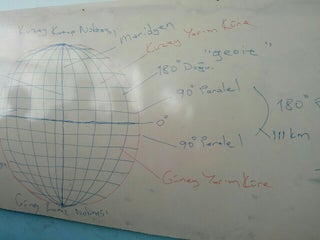 Kuzey Kutup Noktası
meridyen
Kuzey Yarım Küre
"geoit"
180° Doğu
90° Paralel
180°
0°
111 km
90° Paralel
Güney Yarım Küre
Güney Kutup Noktası